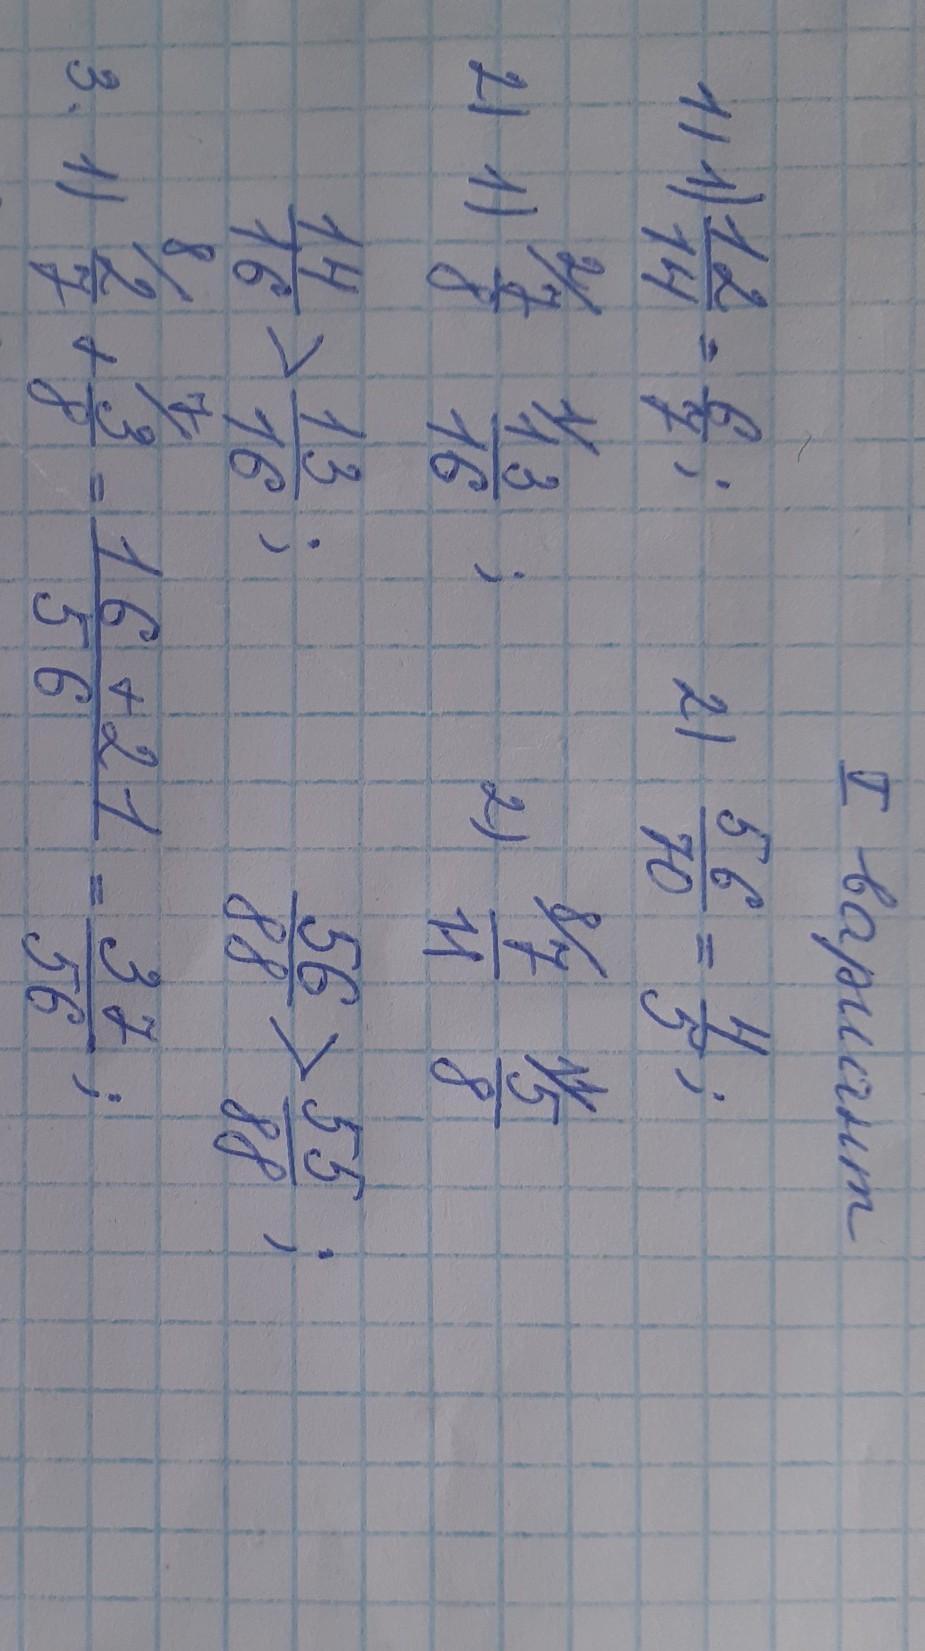 V вариант
1) 1) 12/14 = 6/7; 2) 56/70 = 4/5;
2) 1) 2/ 7/8 1/ 13/16 ; 2) 8/ 7/11 11/ 5/8
14/16 > 13/16 ; 56/88 > 55/88 ;
3. 1) 8/ 2/7 + 7/ 3/8 = 16+21/56 = 37/56 ;